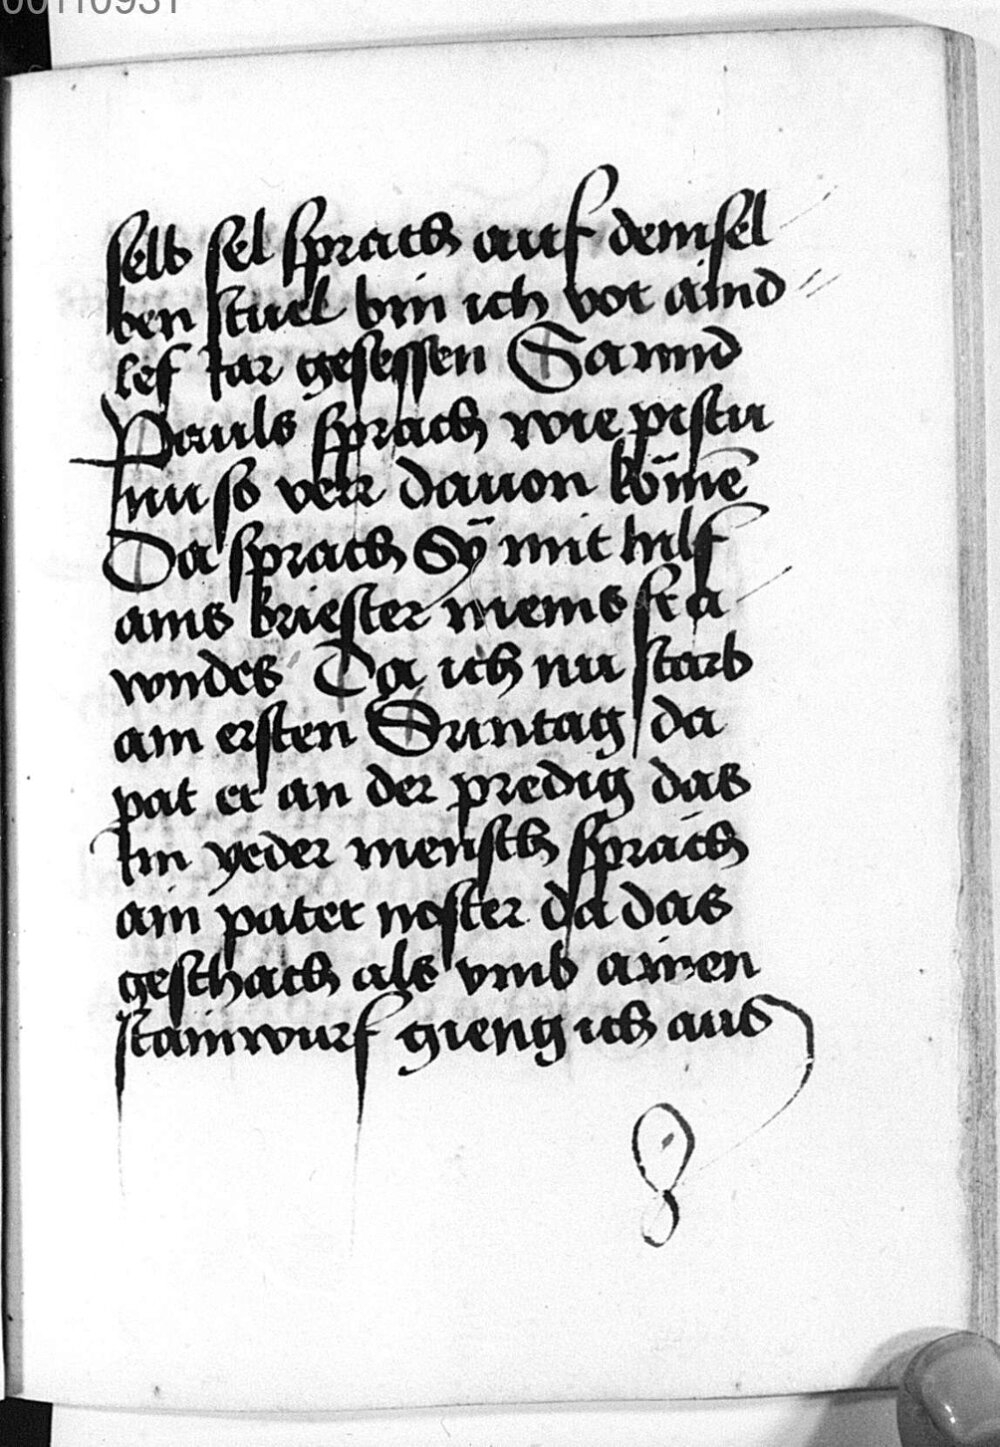 00110931
selb sel sprach auf demsel
ben stuel bin ich vor aind
lef Iar gesessen Sannd
Pauls sprach wie pistu
nu so verr dauon kömē
Da sprach Sÿ mit hilf
ains briester meins fra
wndes Da ich nu starb
am ersten Suntag da
pat er an der predig das
Im yeder mensch sprach
ain pater noster da das
geschach als vmb ainen
stainwurf gieng ich aus